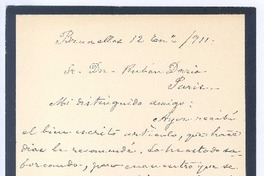 Bruxelles 12 Enº /911.
Sr. Don Rubén Darío
Paris.
Mi distinguido amigo:
Ayer recibí
el bien escrito artículo, que hace
días le recomendé. Lo he estado sa-
boreando, y para encuentro que se